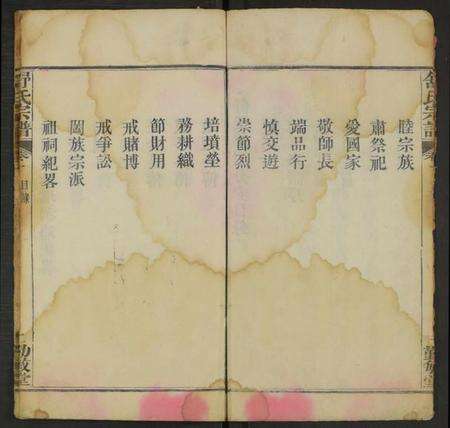 舒氏宗譜
睦宗族
肅祭祀
愛國家
敬師長
端品行
慎交遊
崇節烈
培墳塋
務耕織
節財用
戒賭博
戒爭訟
闔族宗派
祖祠紀畧
舒氏宗譜
卷
目錄